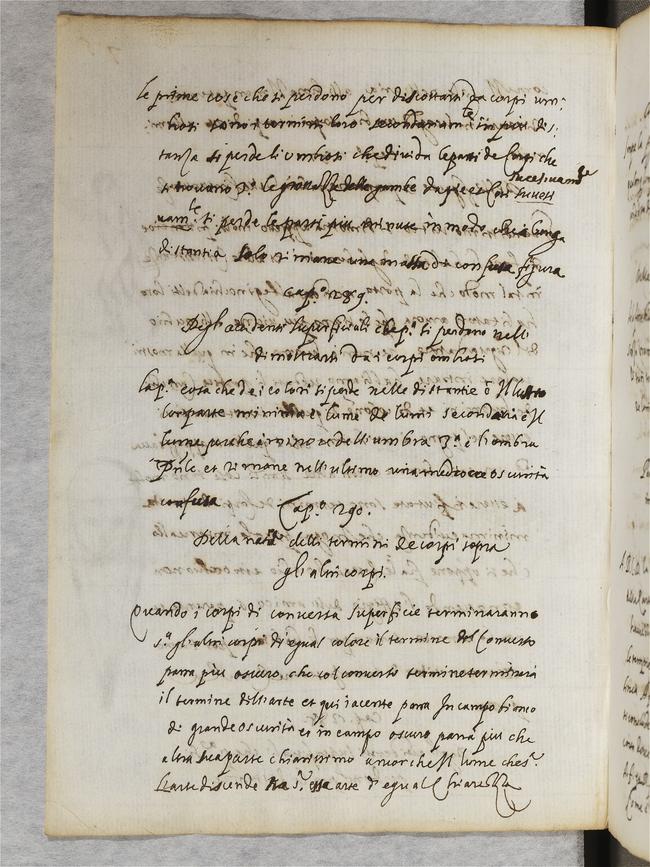 le prime cose che si perdono per discostarsi da corpi um:
brosi sono i termini loro secondariam.te in più dis:
tanza si perde li umbrosi che divida le parti de Corpi che
si toccano 3.o le grossezze delle gambe da piedi e Cosi sucesivam.te
si perde le parti più minute in modo che a lunga
distantia solo rimane una massa di confusa figura
Cap.o 289.
Degli accidenti superficiali che p.a si perdono nelli
dimostrarsi da i corpi ombrosi
La p.a cosa che de i colori si perde nelle distantie è Il lustro
lor parte minima e lume de lumi secondaria è Il
lume perche è minore dell'umbra 3.a è li ombra
Prile et rimane nell'ultimo una mediocre oscurità
confusa
Cap.o 290.
Della nat.a delli termini de corpi sopra
gli altri corpi.
Quando i corpi di conversa superficie terminaranno
s.a gli altri corpi di egual colore il termine del Converso
parra più oscuro, che col converso termine terminera
il termine dell'arte et qui iacente parra In campo bianco
di grande oscurità et in campo oscuro parra più che
altra sua parte chiarissimo ancor che Il lume che s.a
L'arte discende sia s.a essa arte d'egual Chiarezza